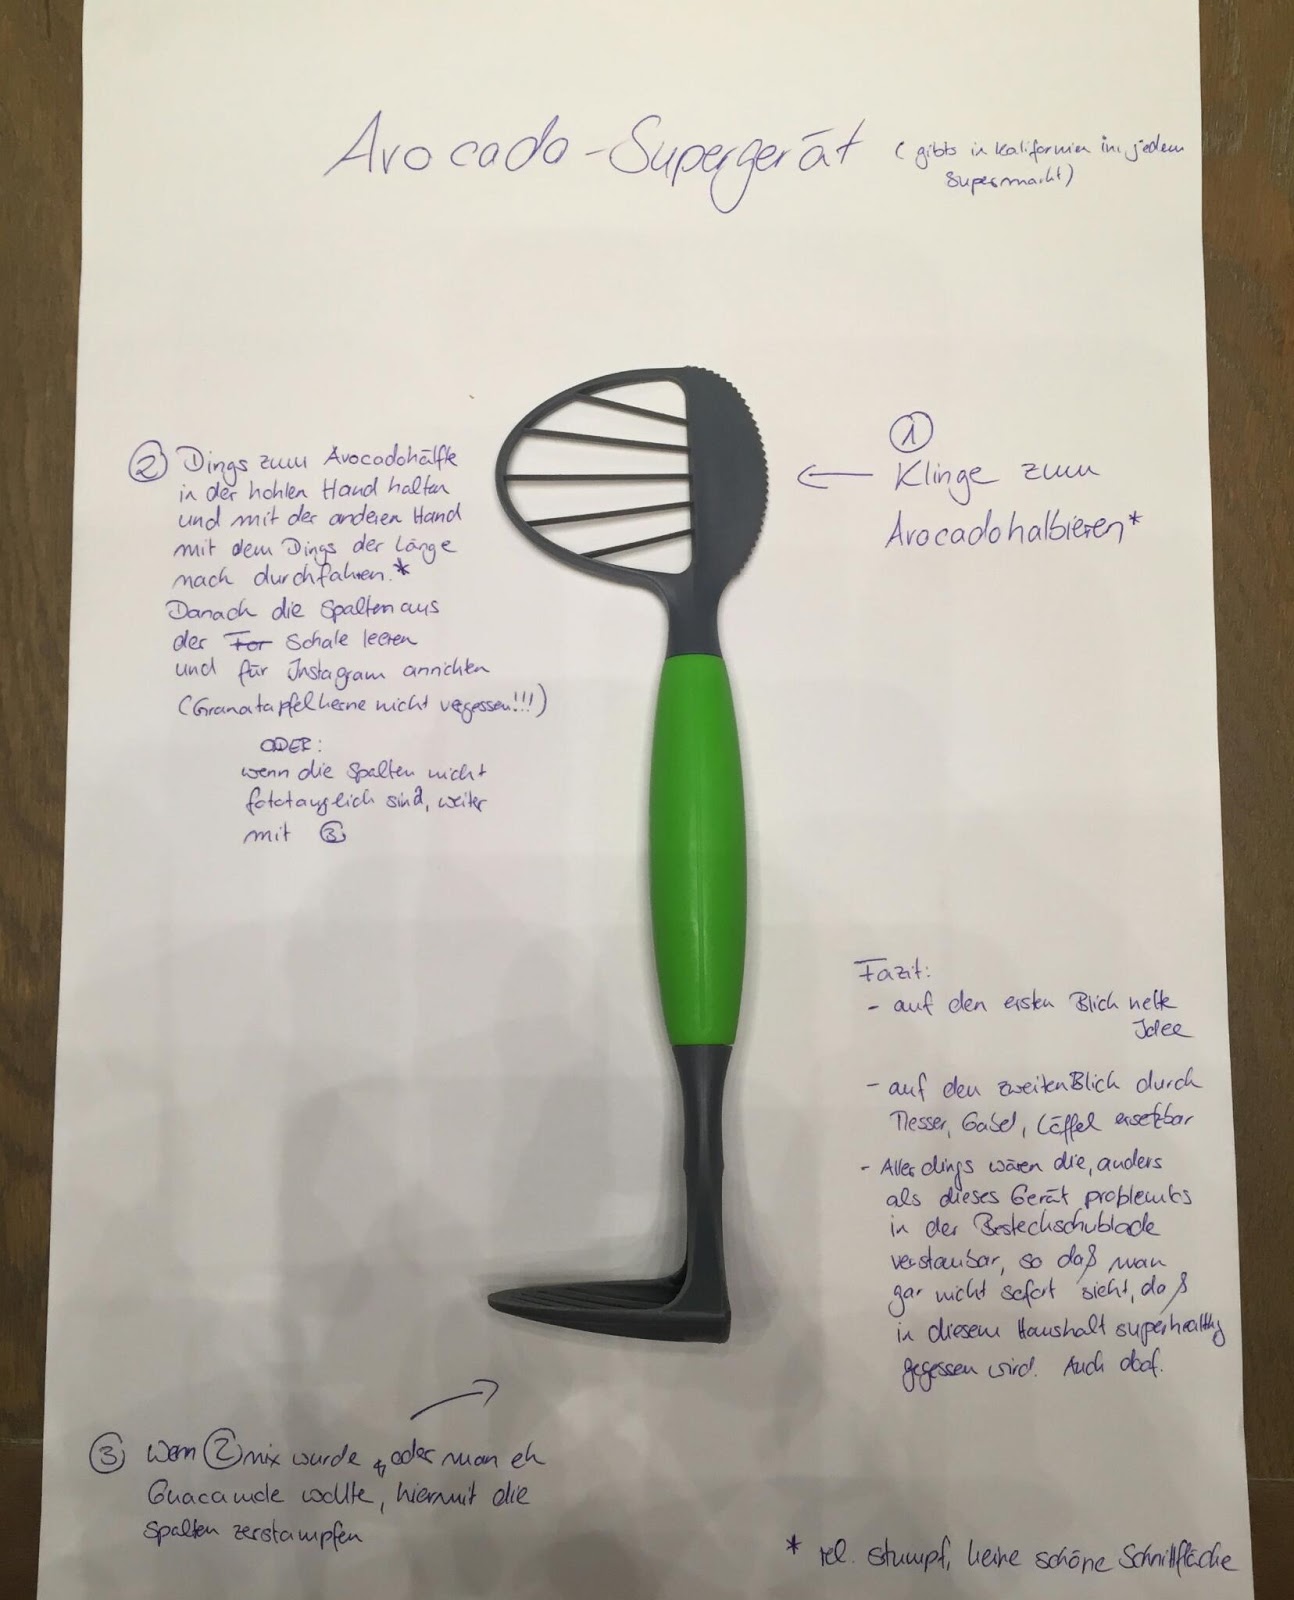 Avocado-Supergerät (gibts in Kalifornien in jedem
Supermarkt)
①
Klinge zum
Avocadohalbieren*
② Dings zum Avocadohälfte
in der hohlen Hand halten
und mit der anderen Hand
mit dem Dings der Länge
nach durchfahren.*
Danach die Spalten aus
der For Schale leeren
und für Instagram anrichten
(Granatapfelkerne nicht vergessen!!!)
ODER:
wenn die Spalten nicht
fototauglich sind, weiter
mit ③
③ Wenn ② nix wurde, oder man eh
Guacamole wollte, hiermit die
Spalten zerstampfen
Fazit:
- auf den ersten Blick nette
Idee
- auf den zweiten Blick durch
Messer, Gabel, Löffel ersetzbar
- Allerdings wären die, anders
als dieses Gerät problemlos
in der Besteckschublade
verstaubar, so daß man
gar nicht sofort sieht, daß
in diesem Haushalt superhealthy
gegessen wird. Auch doof.
* rel. stumpf, keine schöne Schnittfläche